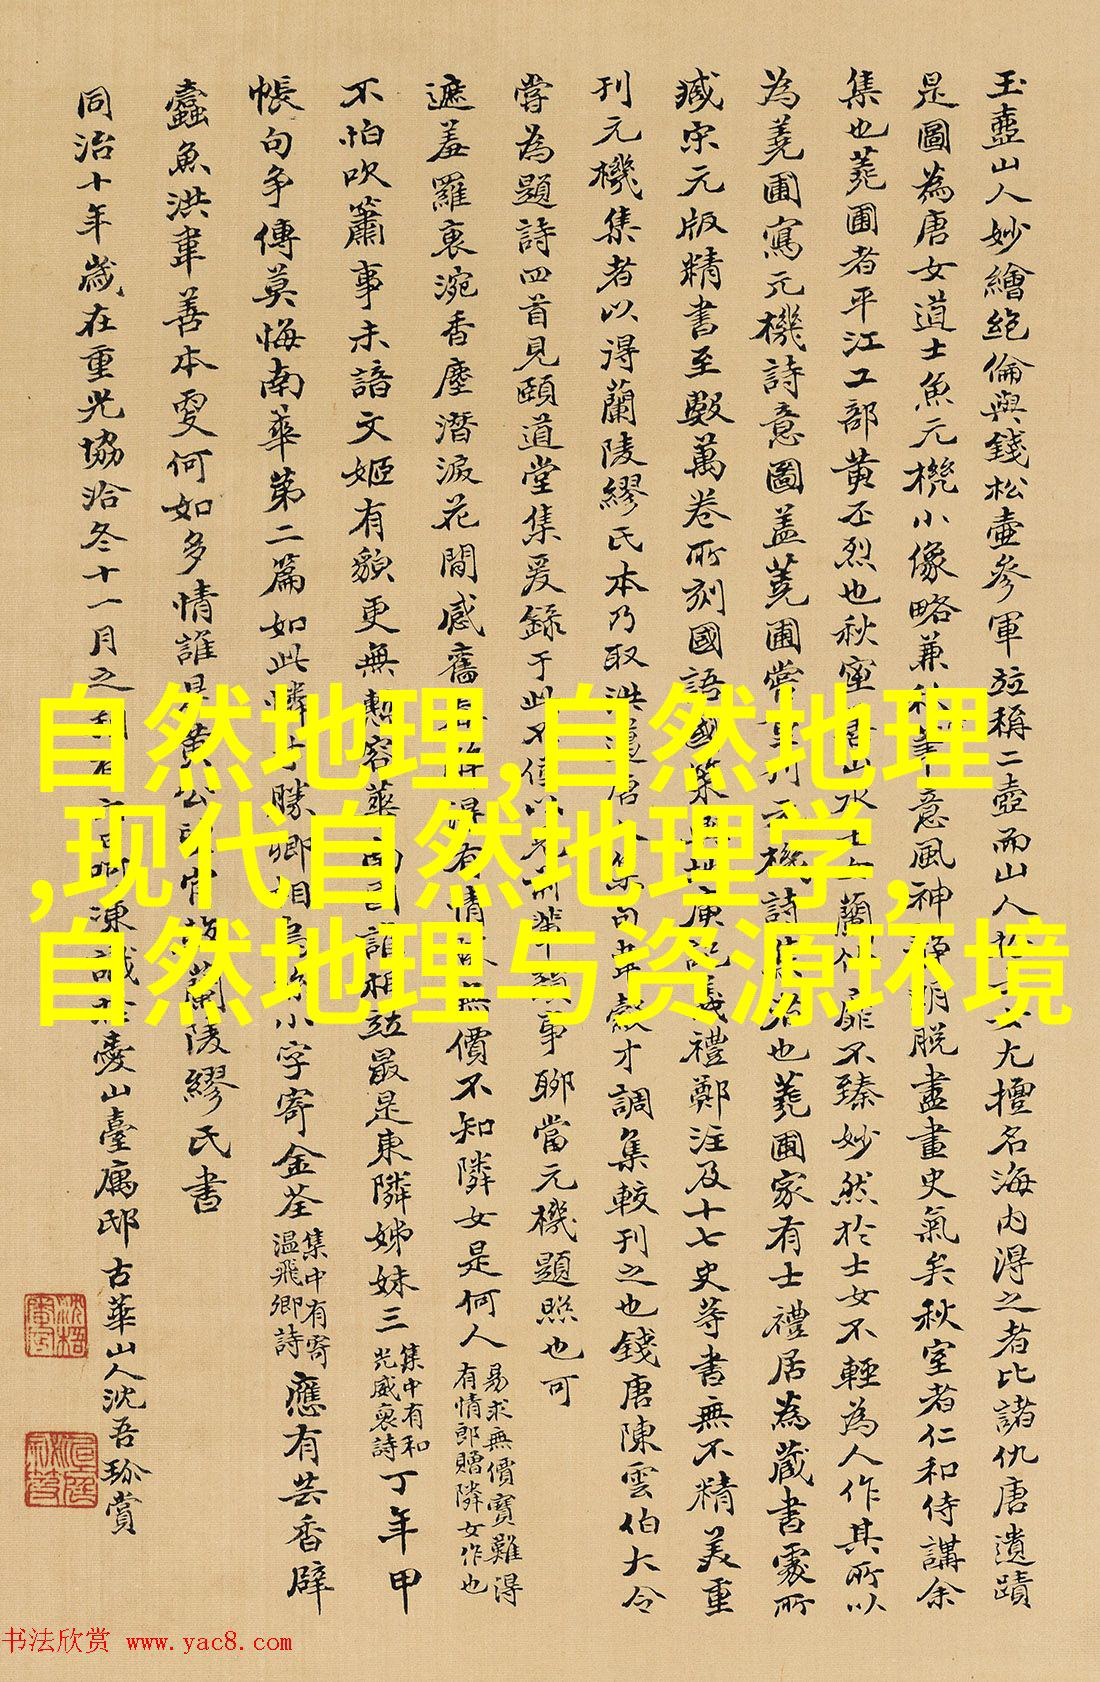 玉壺山人妙繪絕倫與錢松壺參軍竝稱二壺而山人
尤擅名海内得之者比諸仇唐遺蹟
是圖為唐女道士魚元機小像略兼秋
意風神
脫盡畫史氣矣秋室者仁和侍講余
集也蕘圃者平江工部黃丕烈也秋室
山水士女蘭竹
不臻妙然於士女不輕為人作其所以
為蕘圃寫元機詩意圖蓋蕘圃嘗
機詩集
也蕘圃家有士禮居為藏書處所
臧宋元版精書至數萬卷所刻國語國策
儀禮鄭注及十七史等書無不精美重
刊元機集者以得蘭陵繆氏本乃取洪
唐
才調集較刊之也錢唐陳雲伯大令
嘗為題詩四首見頤道堂集爰錄于此不
事聊當元機題照也可
遮羞羅裏涴香塵潛淚花間感舊
有情
無價不知隣女是何人
易求無價寶難得
有情郎贈隣女作也
不怕吹簫事未諳文姬有貌更無慙容華
誰相竝最是東隣姊妹三
集中有和
光威裒詩
丁年甲
帳句爭傳莫悔南華第二篇如此憐才勝
卿相
小字寄金荃
集中有寄
温飛卿詩
應有芸香辟
蠹魚洪韋善本夐何如多情誰是黃公
蘭陵繆氏書
同治十年歲在重光協洽冬十一月之
山臺厲邸古華山人沈吾珎賞
自然地理,自然地理
,现代自然地理学,
自然地理与资源环境
书法欣赏 www.yac8.com